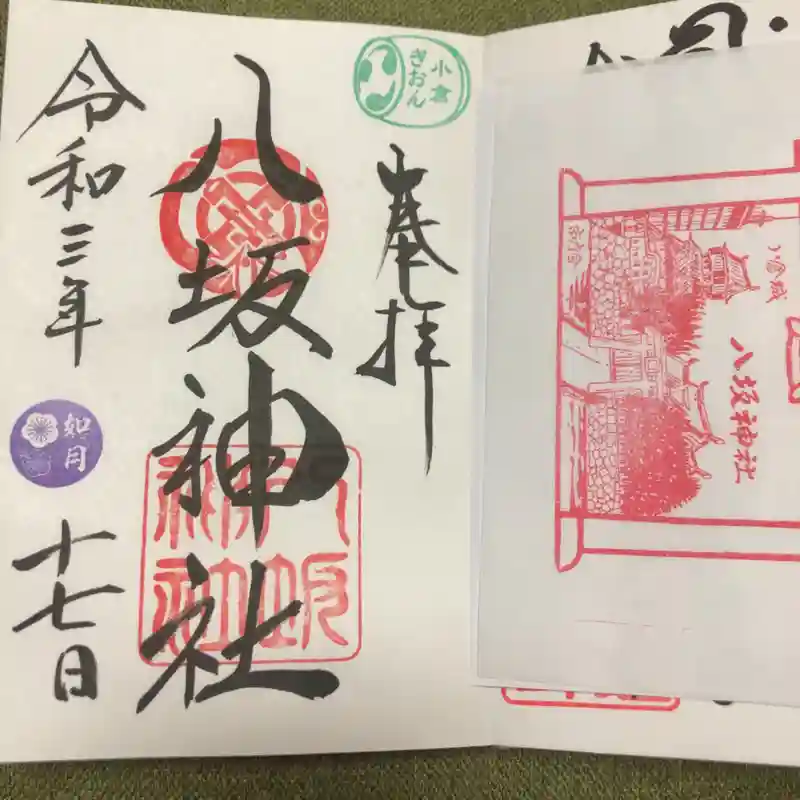 小倉
ぎおん
奉拝
八坂神社
八坂神社
令和三年
如月
十七日
小倉城
八坂神社